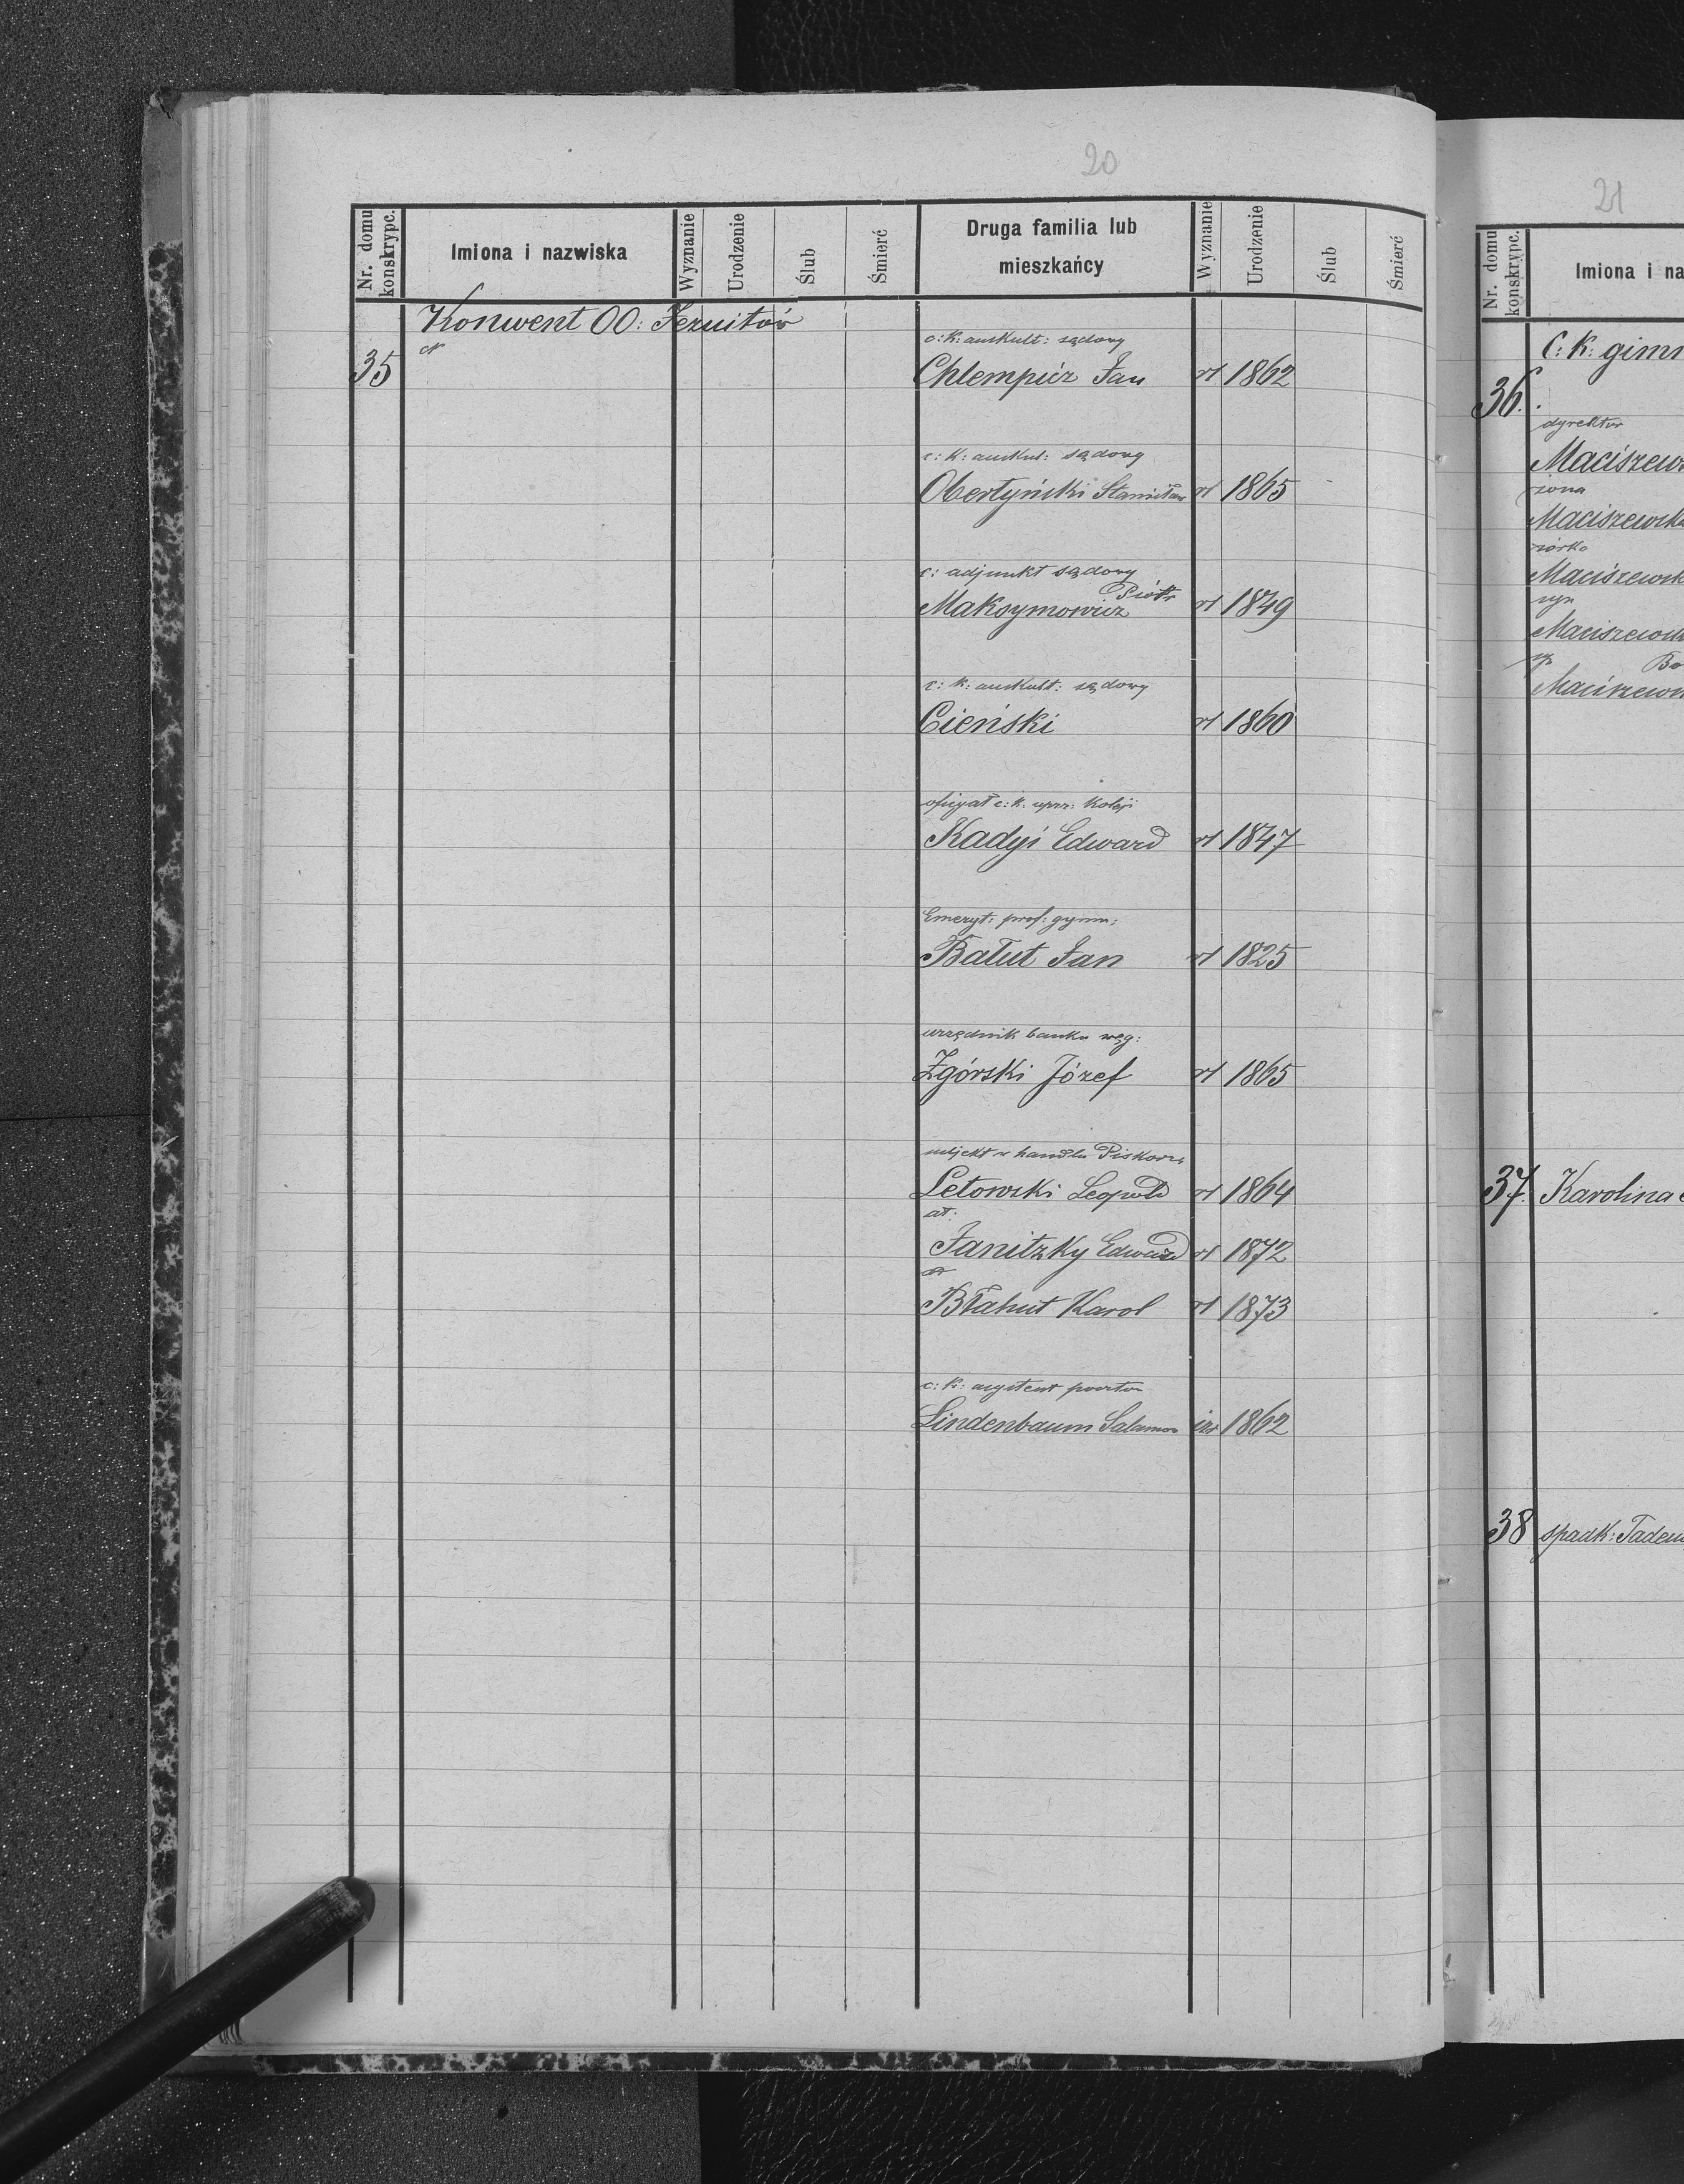 20
Nr. domu konskrypc.
Imiona i nazwiska
Wyznanie
Urodzenie
Ślub
Śmierć
Druga familia lub mieszkańcy
Wyznanie
Urodzenie
Ślub
Śmierć
Konwent OO: Jezuitów
35
c: k: auskult: sądowy
Chlempicz Jan rł 1862
c: k: auskul: sądowy
Obertyński Stanisław rł 1865
c: adjunkt sądowy
Piotr
Maksymowicz rł 1849
c: k: auskult: sądowy
Cieński rł 1860
oficyał c: k: uprz: Koleji
Kadyi Edward rł 1847
Emeryt: prof: gymn:
Bałut Jan rł 1825
urzędnik banku węg:
Zgórski Józef rł 1865
subjekt w handlu Piskorza
Letowski Leopold rł 1864
Janitzky Edward rł 1872
Błahut Karol rł 1873
c: k: asystent
Lindenbaum Salamon izr 1862
21
Nr. domu konskrypc.
Imiona i na
C: K: gimn
36.
dyrektor
Maciszews
żona
Maciszewska
córka
Maciszewsk
syn
Maciszewsk
Bo
Maciszews
37. Karolina
38 spadk: Tadeu